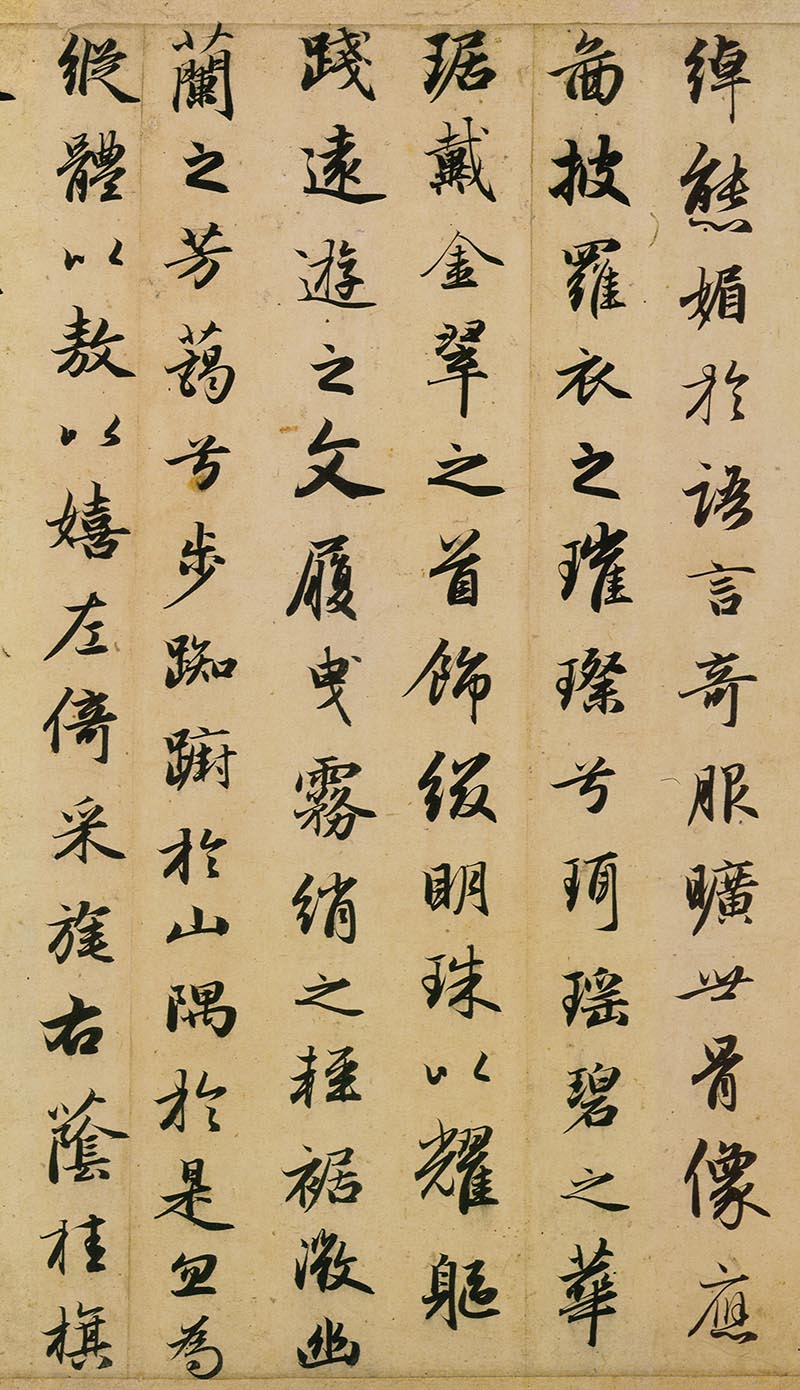 綽態媚於語言奇服曠世骨像應
啚披羅衣之璀璨兮珥瑤碧之華
琚戴金翠之首飾綴明珠以耀軀
踐遠遊之文履曳霧綃之輕裾微幽
蘭之芳藹兮步踟躕於山隅於是忽為
縱體以敖以嬉左倚采旄右蔭桂旗